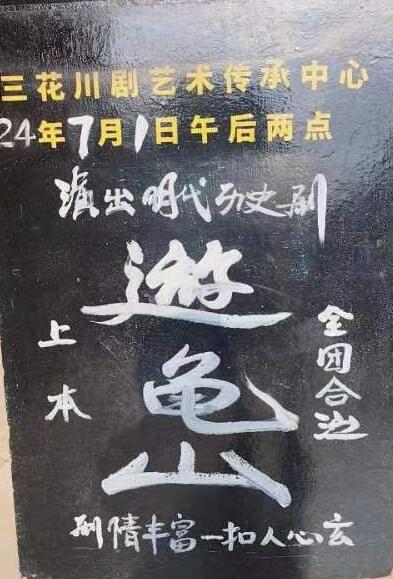 三花川剧艺术传承中心
24年7月1日午后两点
演出明代历史剧
遊龟山
上本
全团合演
剧情丰富一扣人心玄